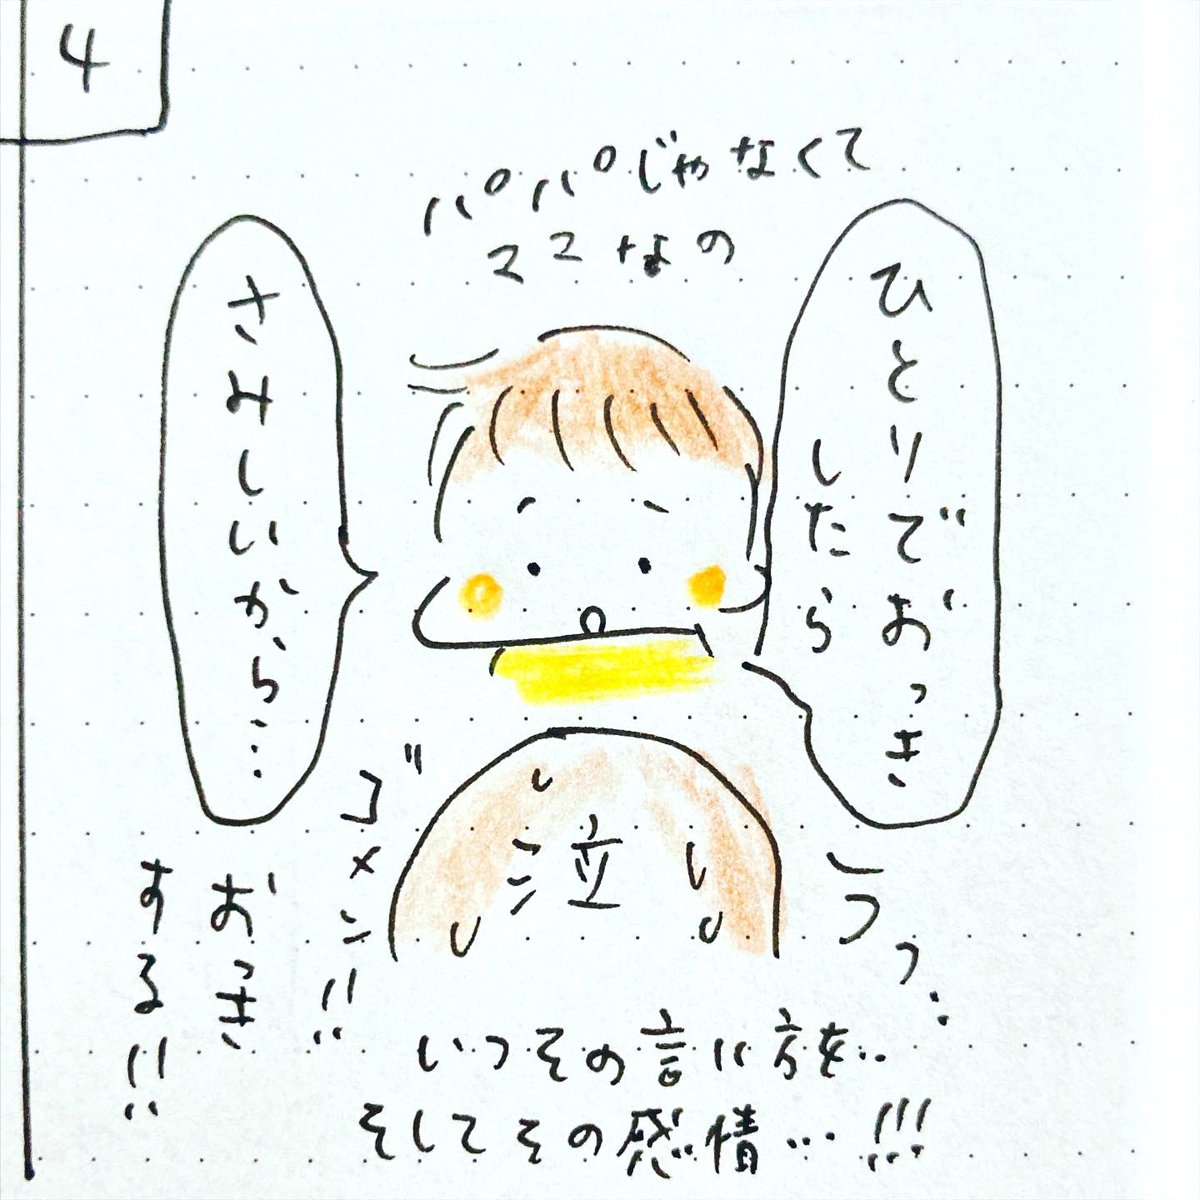 4
パパじゃなくて
ママなの
ひとりでおっき
したら
さみしいから…
うっ、
泣
ゴメン!!
おっき
する!!
いつその言い方を…
そしてその感情…!!!